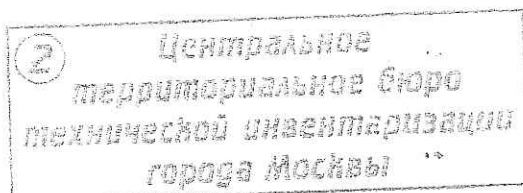 2 Центральное
территориальное бюро
технической инвентаризации
города Москвы